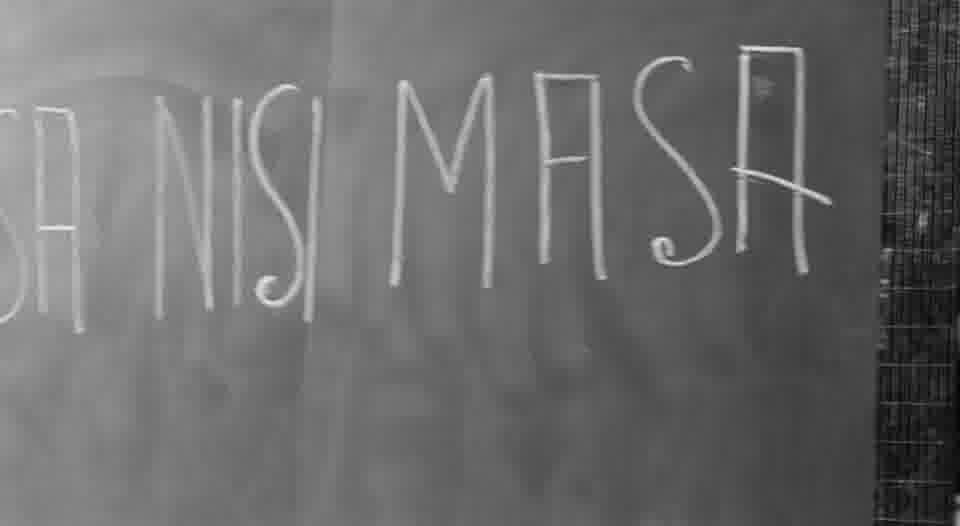 SA NISI MASA